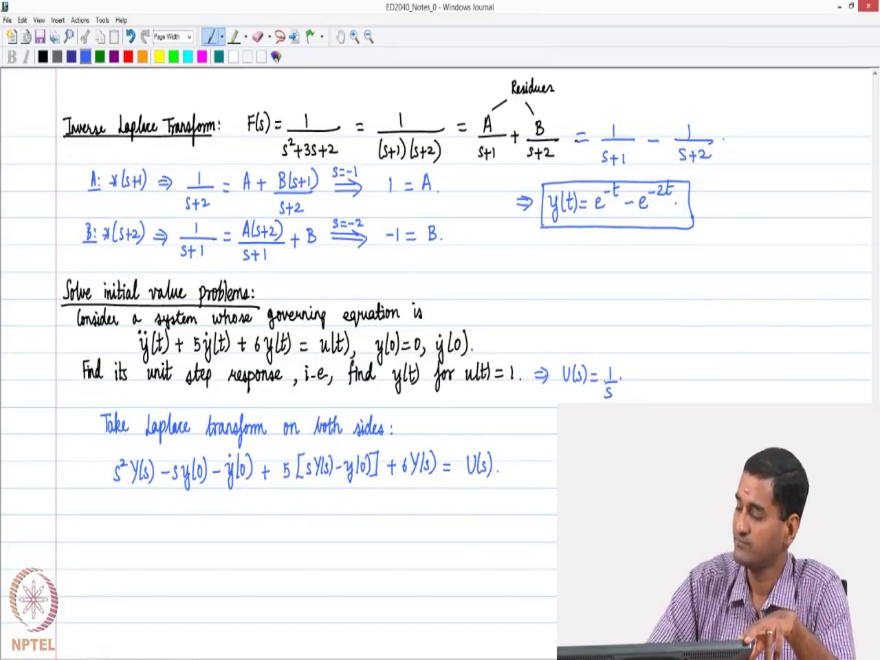 ED2040_Notes_0 - Windows Journal
File Edit View Insert Actions Tools Help
Page Width
B I
Residues
Inverse Laplace Transform: F(s) = 1/(s²+3s+2) = 1/((s+1)(s+2)) = A/(s+1) + B/(s+2) = 1/(s+1) - 1/(s+2).
A: *(s+1) ⇒ 1/(s+2) = A + B(s+1)/(s+2) s=-1 ⇒ 1 = A.
⇒ y(t) = e^{-t} - e^{-2t}.
B: *(s+2) ⇒ 1/(s+1) = A(s+2)/(s+1) + B s=-2 ⇒ -1 = B.
Solve initial value problems:
Consider a system whose governing equation is
ÿ(t) + 5ẏ(t) + 6y(t) = u(t), y(0)=0, ẏ(0).
Find its unit step response, i.e, find y(t) for u(t)=1. ⇒ U(s) = 1/s.
Take Laplace transform on both sides:
s²Y(s) - sy(0) - ẏ(0) + 5[sY(s) - y(0)] + 6Y(s) = U(s).
NPTEL